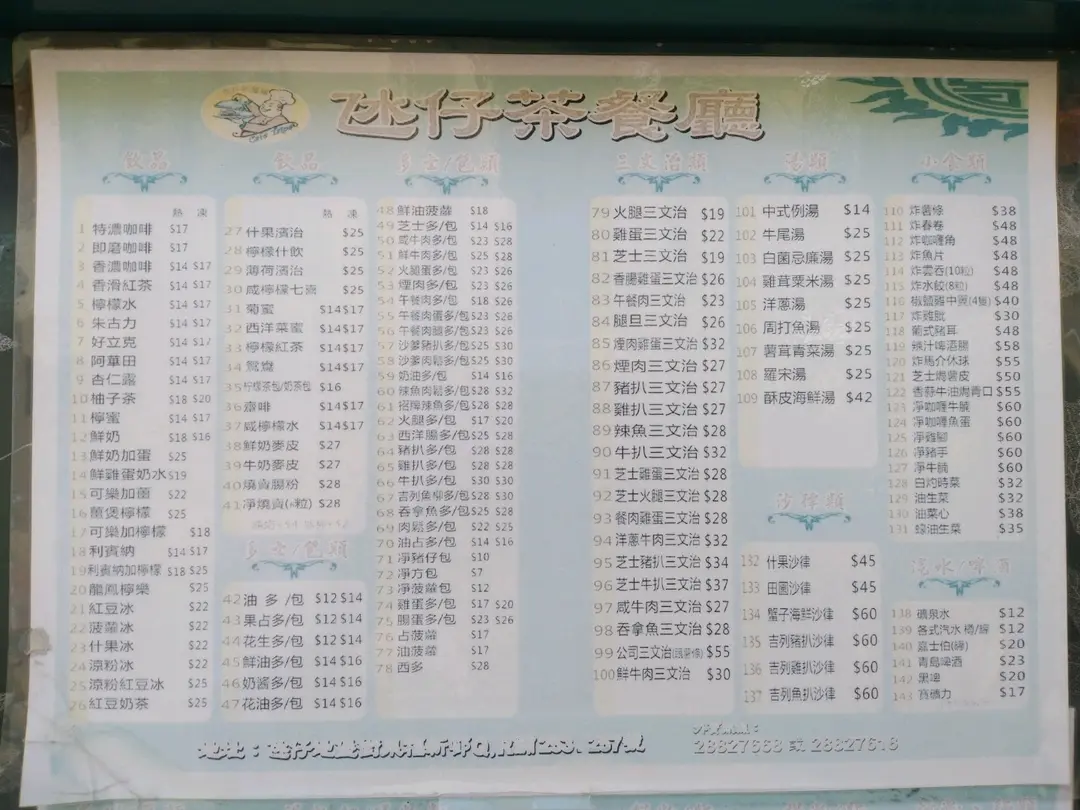 氹仔茶餐廳
飲品
熱 凍
1 特濃咖啡 $17
2 即磨咖啡 $17
3 香濃咖啡 $14 $17
4 香滑紅茶 $14 $17
5 檸檬水 $14 $17
6 朱古力 $14 $17
7 好立克 $14 $17
8 阿華田 $14 $17
9 杏仁露 $14 $17
10 柚子茶 $18 $20
11 檸蜜 $14 $17
12 鮮奶 $18 $16
13 鮮奶加蛋 $25
14 鮮雞蛋奶水 $19
15 可樂加薑 $22
16 薑煲檸檬 $25
17 可樂加檸檬 $18
18 利賓納 $14 $17
19 利賓納加檸檬 $18 $25
20 龍鳳檸樂 $25
21 紅豆冰 $22
22 菠蘿冰 $22
23 什果冰 $22
24 涼粉冰 $22
25 涼粉紅豆冰 $25
26 紅豆奶茶 $25
飲品
熱 凍
27 什果濱治 $25
28 檸檬什飲 $25
29 薄荷濱治 $25
30 咸檸檬七喜 $25
31 菊蜜 $14 $17
32 西洋菜蜜 $14 $17
33 檸檬紅茶 $14 $17
34 鴛鴦 $14 $17
35 柠檬茶包/奶茶包 $16
36 齋啡 $14 $17
37 咸檸檬水 $14 $17
38 鮮奶麥皮 $27
39 牛奶麥皮 $27
40 燒賣腸粉 $28
41 淨燒賣(6粒) $28
多士/包類
42 油多/包 $12 $14
43 果占多/包 $12 $14
44 花生多/包 $12 $14
45 鮮油多/包 $14 $16
46 奶醬多/包 $14 $16
47 花油多/包 $14 $16
多士/包類
48 鮮油菠蘿 $18
49 芝士多/包 $14 $16
50 咸牛肉多/包 $23 $28
51 鮮牛肉多/包 $25 $28
52 火腿蛋多/包 $23 $26
53 煙肉多/包 $23 $26
54 午餐肉多/包 $18 $26
55 午餐肉蛋多/包 $23 $28
56 午餐肉腿多/包 $23 $26
57 沙爹豬扒多/包 $25 $30
58 沙爹肉多/包 $25 $30
59 奶油多/包 $14 $16
60 辣魚肉鬆多/包 $28 $32
61 招牌辣魚多/包 $28 $28
62 火腿多/包 $17 $20
63 西洋腸多/包 $25 $28
64 豬扒多/包 $28 $28
65 雞扒多/包 $28 $28
66 牛扒多/包 $30 $30
67 吉列魚柳多/包 $28 $30
68 吞拿魚多/包 $25 $28
69 肉鬆多/包 $22 $25
70 油占多/包 $14 $16
71 淨豬仔包 $10
72 淨方包 $7
73 淨菠蘿包 $12
74 雞蛋多/包 $17 $20
75 腸蛋多/包 $23 $26
76 占菠蘿 $17
77 油菠蘿 $17
78 西多 $28
三文治類
79 火腿三文治 $19
80 雞蛋三文治 $22
81 芝士三文治 $19
82 香腸雞蛋三文治 $26
83 午餐肉三文治 $23
84 腿旦三文治 $26
85 煙肉雞蛋三文治 $32
86 煙肉三文治 $27
87 豬扒三文治 $27
88 雞扒三文治 $27
89 辣魚三文治 $28
90 牛扒三文治 $32
91 芝士雞蛋三文治 $28
92 芝士火腿三文治 $28
93 餐肉雞蛋三文治 $28
94 洋蔥牛肉三文治 $32
95 芝士豬扒三文治 $34
96 芝士牛扒三文治 $37
97 咸牛肉三文治 $27
98 吞拿魚三文治 $28
99 公司三文治(跟薯條) $55
100 鮮牛肉三文治 $30
湯類
101 中式例湯 $14
102 牛尾湯 $25
103 白菌忌廉湯 $25
104 雞茸粟米湯 $25
105 洋蔥湯 $25
106 周打魚湯 $25
107 薯茸青菜湯 $25
108 羅宋湯 $25
109 酥皮海鮮湯 $42
沙律類
132 什果沙律 $45
133 田園沙律 $45
134 蟹子海鮮沙律 $60
135 吉列豬扒沙律 $60
136 吉列雞扒沙律 $60
137 吉列魚扒沙律 $60
小食類
110 炸薯條 $38
111 炸春卷 $48
112 炸咖喱角 $48
113 炸魚片 $48
114 炸雲吞(10粒) $48
115 炸水餃(8粒) $48
116 椒鹽雞中翼(4隻) $40
117 炸雞肶 $30
118 葡式豬耳 $48
119 辣汁啤酒腸 $58
120 炸馬介休球 $55
121 芝士焗薯皮 $50
122 香蒜牛油焗青口 $55
123 淨咖喱牛腩 $60
124 淨咖喱魚蛋 $60
125 淨雞腳 $60
126 淨豬手 $60
127 淨牛腩 $60
128 白灼時菜 $32
129 油生菜 $32
130 油菜心 $38
131 蠔油生菜 $35
汽水/啤酒
138 礦泉水 $12
139 各式汽水 $12
140 嘉士伯(罐) $20
141 青島啤酒 $23
142 黑啤 $20
143 寶礦力 $17
地址：氹仔
28827668 或 28827618